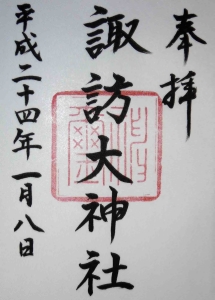 奉拝
諏訪大神社
平成二十四年一月八日